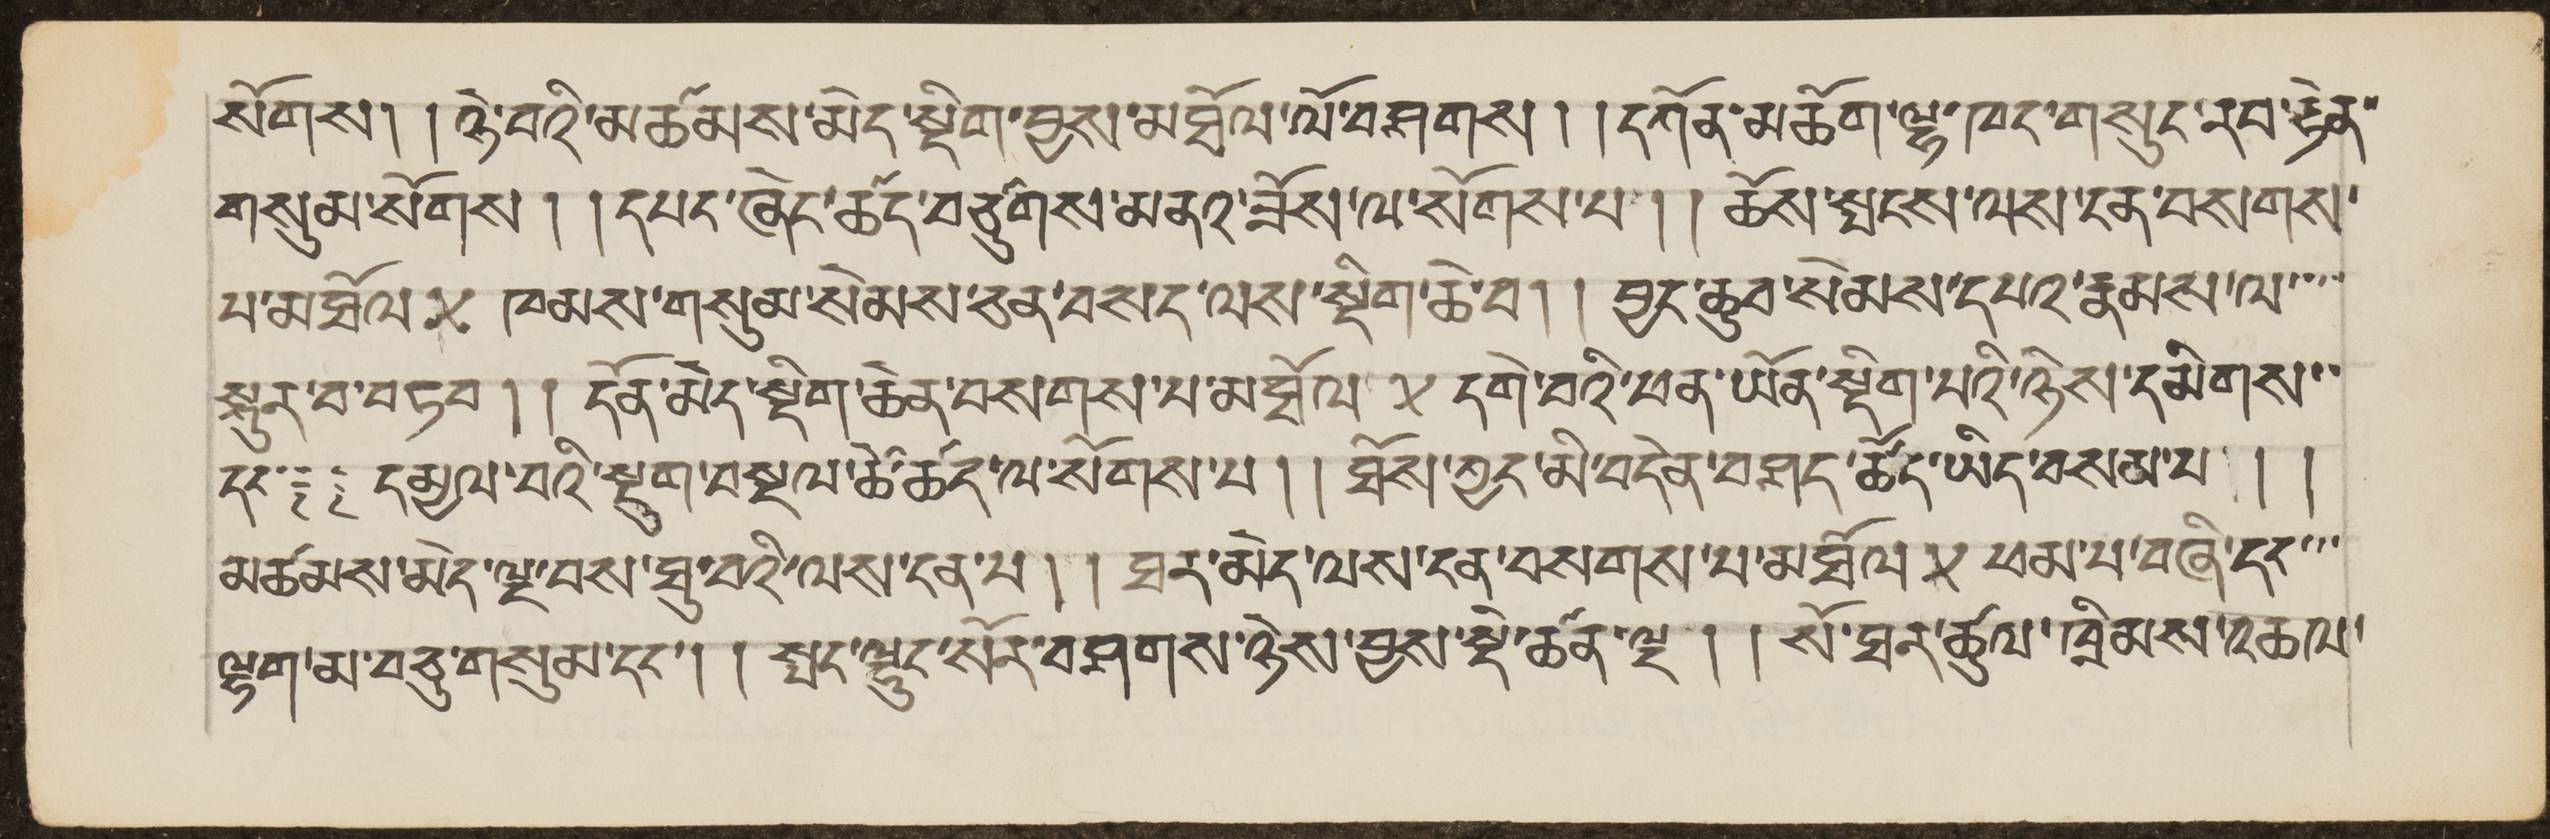 སོགས། །ཉེ་བའི་མཚམས་མེད་སྡིག་བྱས་མཐོལ་ལོ་བཤགས། །དཀོན་མཆོག་ལྷ་ཁང་གསུང་རབ་རྟེན་
གསུམ་སོགས། །དཔང་ཞེང་ཚད་བཙུགས་མནའ་ཟོས་ལ་སོགས་པ། །ཆོས་སྤངས་ལས་ངན་བསགས་
པ་མཐོལ་ ༓ ཁམས་གསུམ་སེམས་ཅན་བསད་ལས་སྡིག་ཆེ་བ། །བྱང་ཆུབ་སེམས་དཔའ་རྣམས་ལ་
སྐུར་བ་བཏབ། །དོན་མེད་སྡིག་ཆེན་བསགས་པ་མཐོལ་ × དགེ་བའི་ཕན་ཡོན་སྡིག་པའི་ཉེས་དམིགས་
དང་ དམྱལ་བའི་སྡུག་བསྔལ་ཚེ་ཚད་ལ་སོགས་པ། །ཐོས་ཀྱང་མི་བདེན་བཤད་ཚོད་ཡིན་བསམ་པ། །
མཚམས་མེད་ལྔ་བས་ཐུ་བའི་ལས་ངན་པ། །ཐར་མེད་ལས་ངན་བསགས་པ་མཐོལ་ × ཕམ་པ་བཞི་དང་
ལྷག་མ་བཅུ་གསུམ་དང་། །སྤང་ལྟུང་སོར་བཤགས་ཉེས་བྱས་སྡེ་ཚན་ལྔ། །སོ་ཐར་ཚུལ་ཁྲིམས་འཆལ་